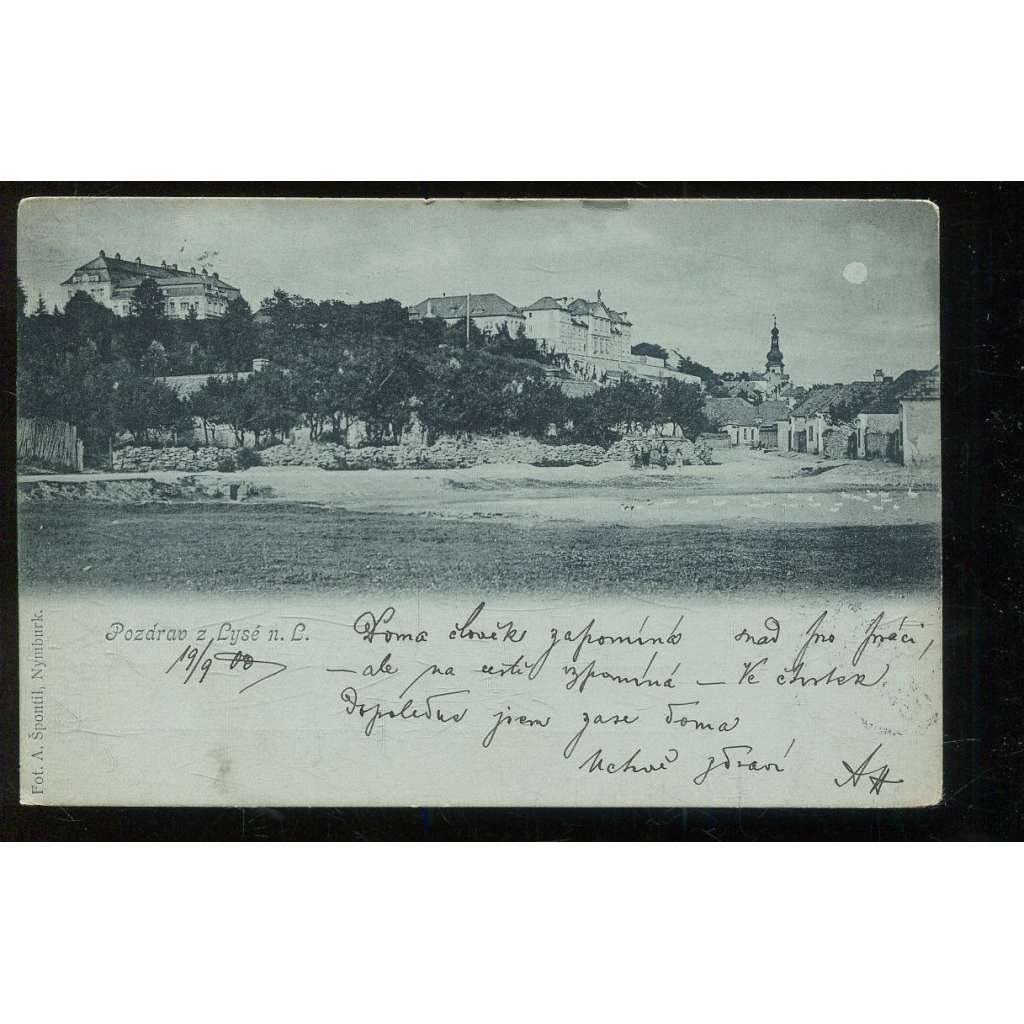 Pozdrav z Lysé n. L.
19/9 00
Doma člověk zapomíná snad pro práci,
– ale na cestě vzpomíná – Ve čtvrtek
Dopoledne jsem zase doma
zdraví
AH
Fot. A. Špontil, Nymburk.